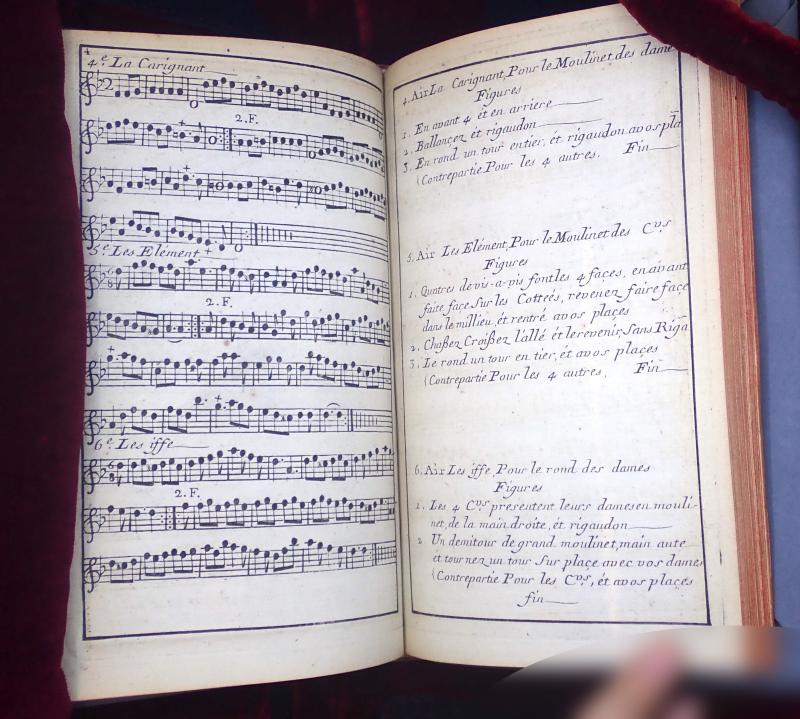 4
4.e La Carignant
2.F.
5.e Les Elément
2.F.
6.e Les iffe
2.F.
4. Air La Carignant, Pour le Moulinet des dame
Figures
1. En avant 4 ét en arriere
2. Ballançez ét rigaudon
3. En rond un tour entier, ét rigaudon avos pla
(Contrepartie Pour les 4 autres. Fin
5. Air Les Elément, Pour le Moulinet des C.vs
Figures
1. Quatres de vis-a-vis font les 4 façes, en avant
faite face Sur les Cotteés, revenez faire façe
dans le millieu, ét rentré avos plaçes
2. Chaßez Croißez l'allé ét le revenir, Sans Riga
3. Le rond un tour en tier, ét avos plaçes
(Contrepartie Pour les 4 autres. Fin
6. Air Les iffe, Pour le rond des dames
Figures
1. Les 4 C.vs presentent leurs dames en mouli-
net, de la main droite, ét rigaudon
2 Un demitour de grand moulinet, main aute
ét tournez un tour Sur plaçe avec vos dames
(Contrepartie Pour les C.vs, ét avos plaçes
fin